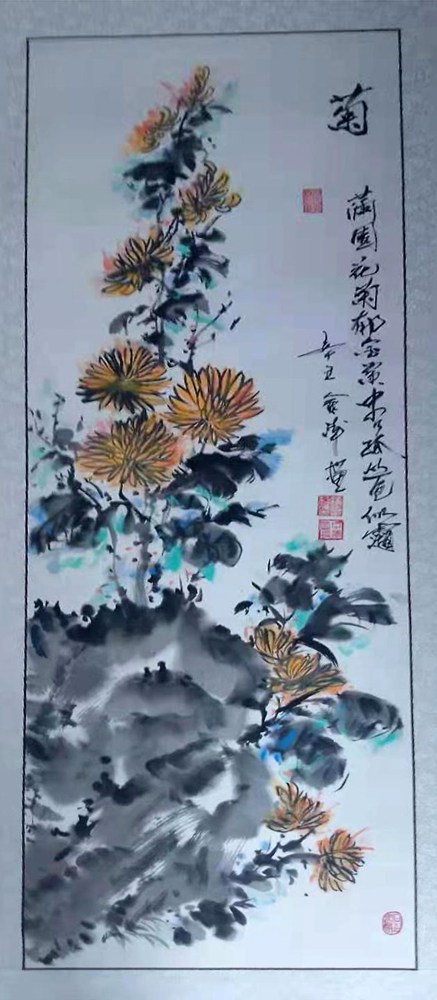 菊
满園花菊郁金黄中有孤丛色似霜
辛丑